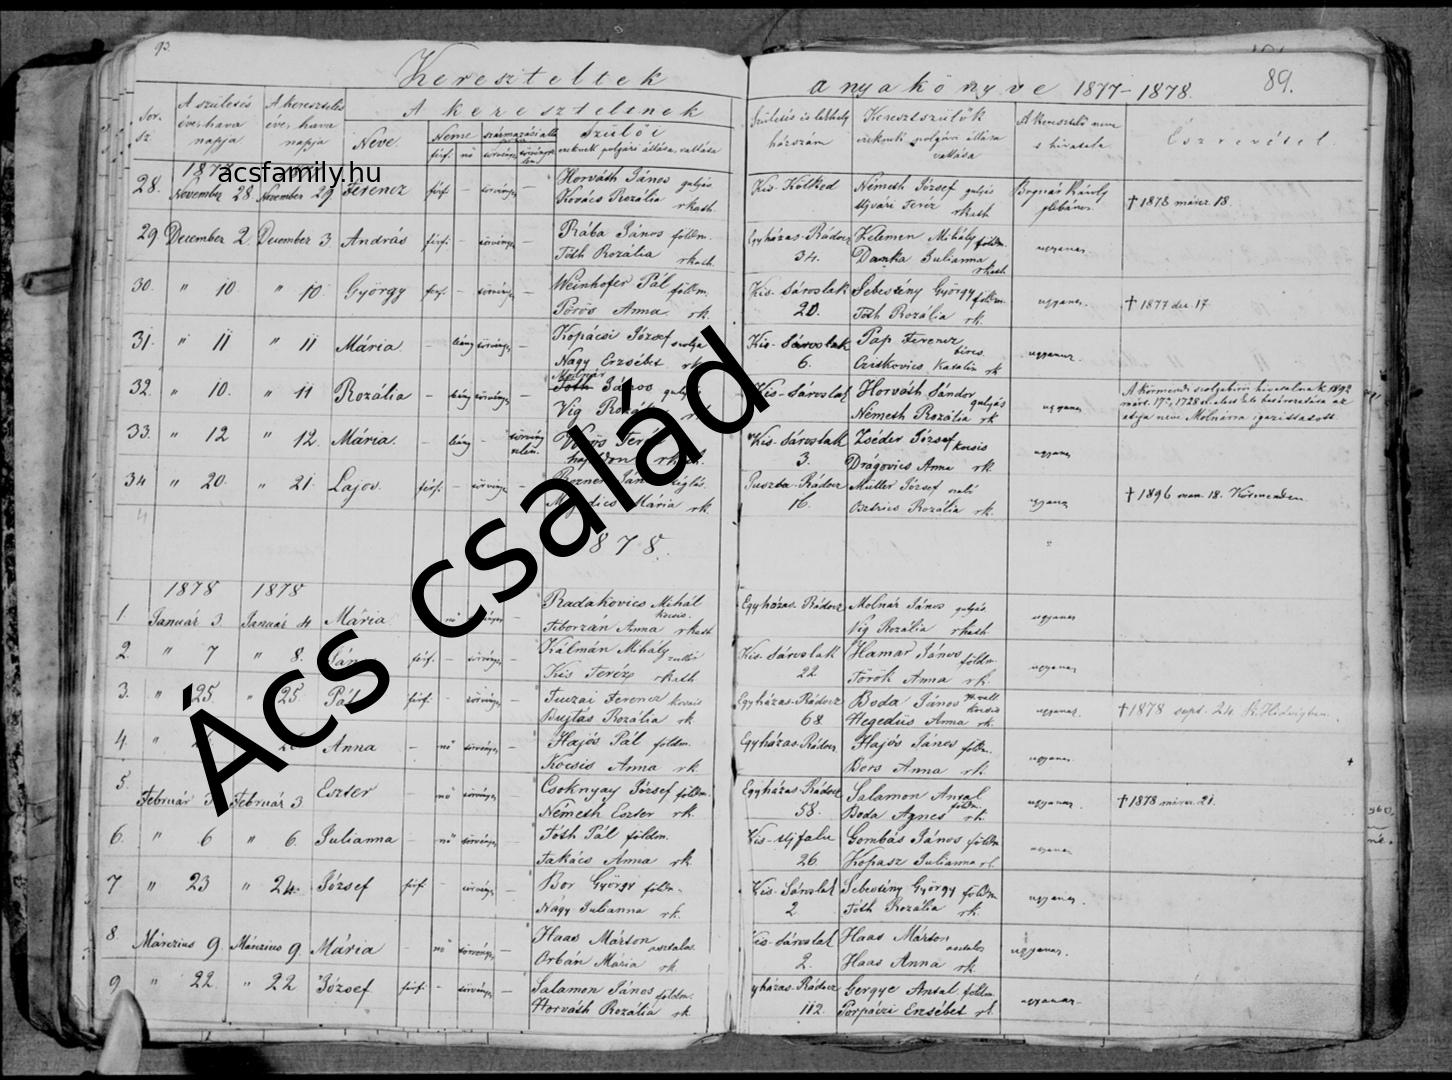 93.
Kereszteltek
anyakönyve 1877-1878.
89.
Sor. sz.
A születés éve, hava napja
A keresztelés éve, hava napja
A kereszteltnek
Neve.
Neme
férf. nő
Szülői
ezeknek polgári állása, vallása
Születés és lakhely házszám
Keresztszülők
ezeknek polgári állása vallása
A keresztelő neve s hivatala
Észrevétel.
acsfamily.hu
28. November 28. November 29. Ferencz férf. törvényes — Horváth János gulyás Kis-Kölked Németh József gulyás Bognár Károly † 1878 márcz. 18.
Kovács Rozália rkath. Ujvári Teréz rkath plébános
29 December 2. December 3 András férf. — törvényes — Rába János földm. Egyházas-Rádócz Kelemen Mihály földm. ugyanaz
Tóth Rozália rkath. 34. Danka Julianna rkath
30. " 10 " 10. György férf. — törvényes — Weinhofer Pál földm. Kis-Sároslak Sebestény György földm. ugyanaz. † 1877 dec. 17.
Pörös Anna rk. 20. Tóth Rozália rk.
31. " 11 " 11 Mária. — leány törvényes — Kopácsi József szolga Kis-Sároslak Pap Ferencz béres ugyanaz
Nagy Erzsébet rk 6. Czitkovics Katalin rk
Molnár
32. " 10. " 11 Rozália — leány törvényes — Tóth János Kis-Sároslak Horváth Sándor gulyás ugyanaz A körmendi szolgabírói hivatalnak 1892
Vig Németh Rozália rk márt. 17én 1728 sz. alatt
atyja neve Molnárra igazittatott.
33. " 12 " 12. Mária. — leány — törvénytelen. Vörös Kis-Sároslak Zséder József kocsis ugyanaz
hajadon rkath. 3. Drágovics Anna rk.
34 " 20. " 21. Lajos. férf. — törvényes — János Puszta-Rádócz Müller József ugyanaz † 1896 18. Körmenden
Mária rk. 16. Rozália rk.
1878.
1878 1878
1 Január 3 Január 4 Mária nő Radakovics Mihál kocsis Egyházas-Rádócz Molnár János gulyás ugyanaz
Tiborzán Anna rkath Vig Rozália rkath
2. " 7 " 8. férf. — törvényes — Kálmán Mihály Kis-Sároslak Hamar János földm. ugyanaz
Kis Teréz rkath 22 Török Anna rk.
3. " 25. " 25. Pál férf. — törvényes — Ferencz kovács Egyházas-Rádócz Boda János kocsis ugyanaz. † 1878 sept. 24.
Bujtás Rozália rk 68. Hegedüs Anna rk.
4. " Anna — nő törvényes — Hajós Pál földm. Egyházas-Rádócz Hajós János földm. ugyanaz.
Kocsis Anna rk. Bors Anna rk.
5. Február 3 Február 3 Eszter nő törvényes — Csoknyay József földm. Egyházas-Rádócz Salamon Antal földm. ugyanaz. † 1878 márcz. 21.
Németh Eszter rk. 58. Boda Ágnes rk.
6. " 6 " 6. Julianna — nő törvényes — Tóth Pál földm. Kis-Ujfalu Gombás János földm ugyanaz
Takács Anna rk 26. Kopasz Julianna rk
7 " 23 " 24. József férf. — törvényes — Bor György földm. Kis-Sároslak Sebestény György földm ugyanaz.
Nagy Julianna rk. 2 Tóth Rozália rk.
8. Márczius 9. Márczius 9. Mária — nő törvényes — Haas Márton asztalos Kis-Sároslak Haas Márton asztalos ugyanaz.
Orbán Mária rk. 2. Haas Anna rk.
9 " 22 " 22 József férf. — törvényes — Salamon János földm. yházas-Rádócz Gergye Antal földm. ugyanaz
Horváth Rozália rk. 112. Pórpáczi Erzsébet rk.
Ács család